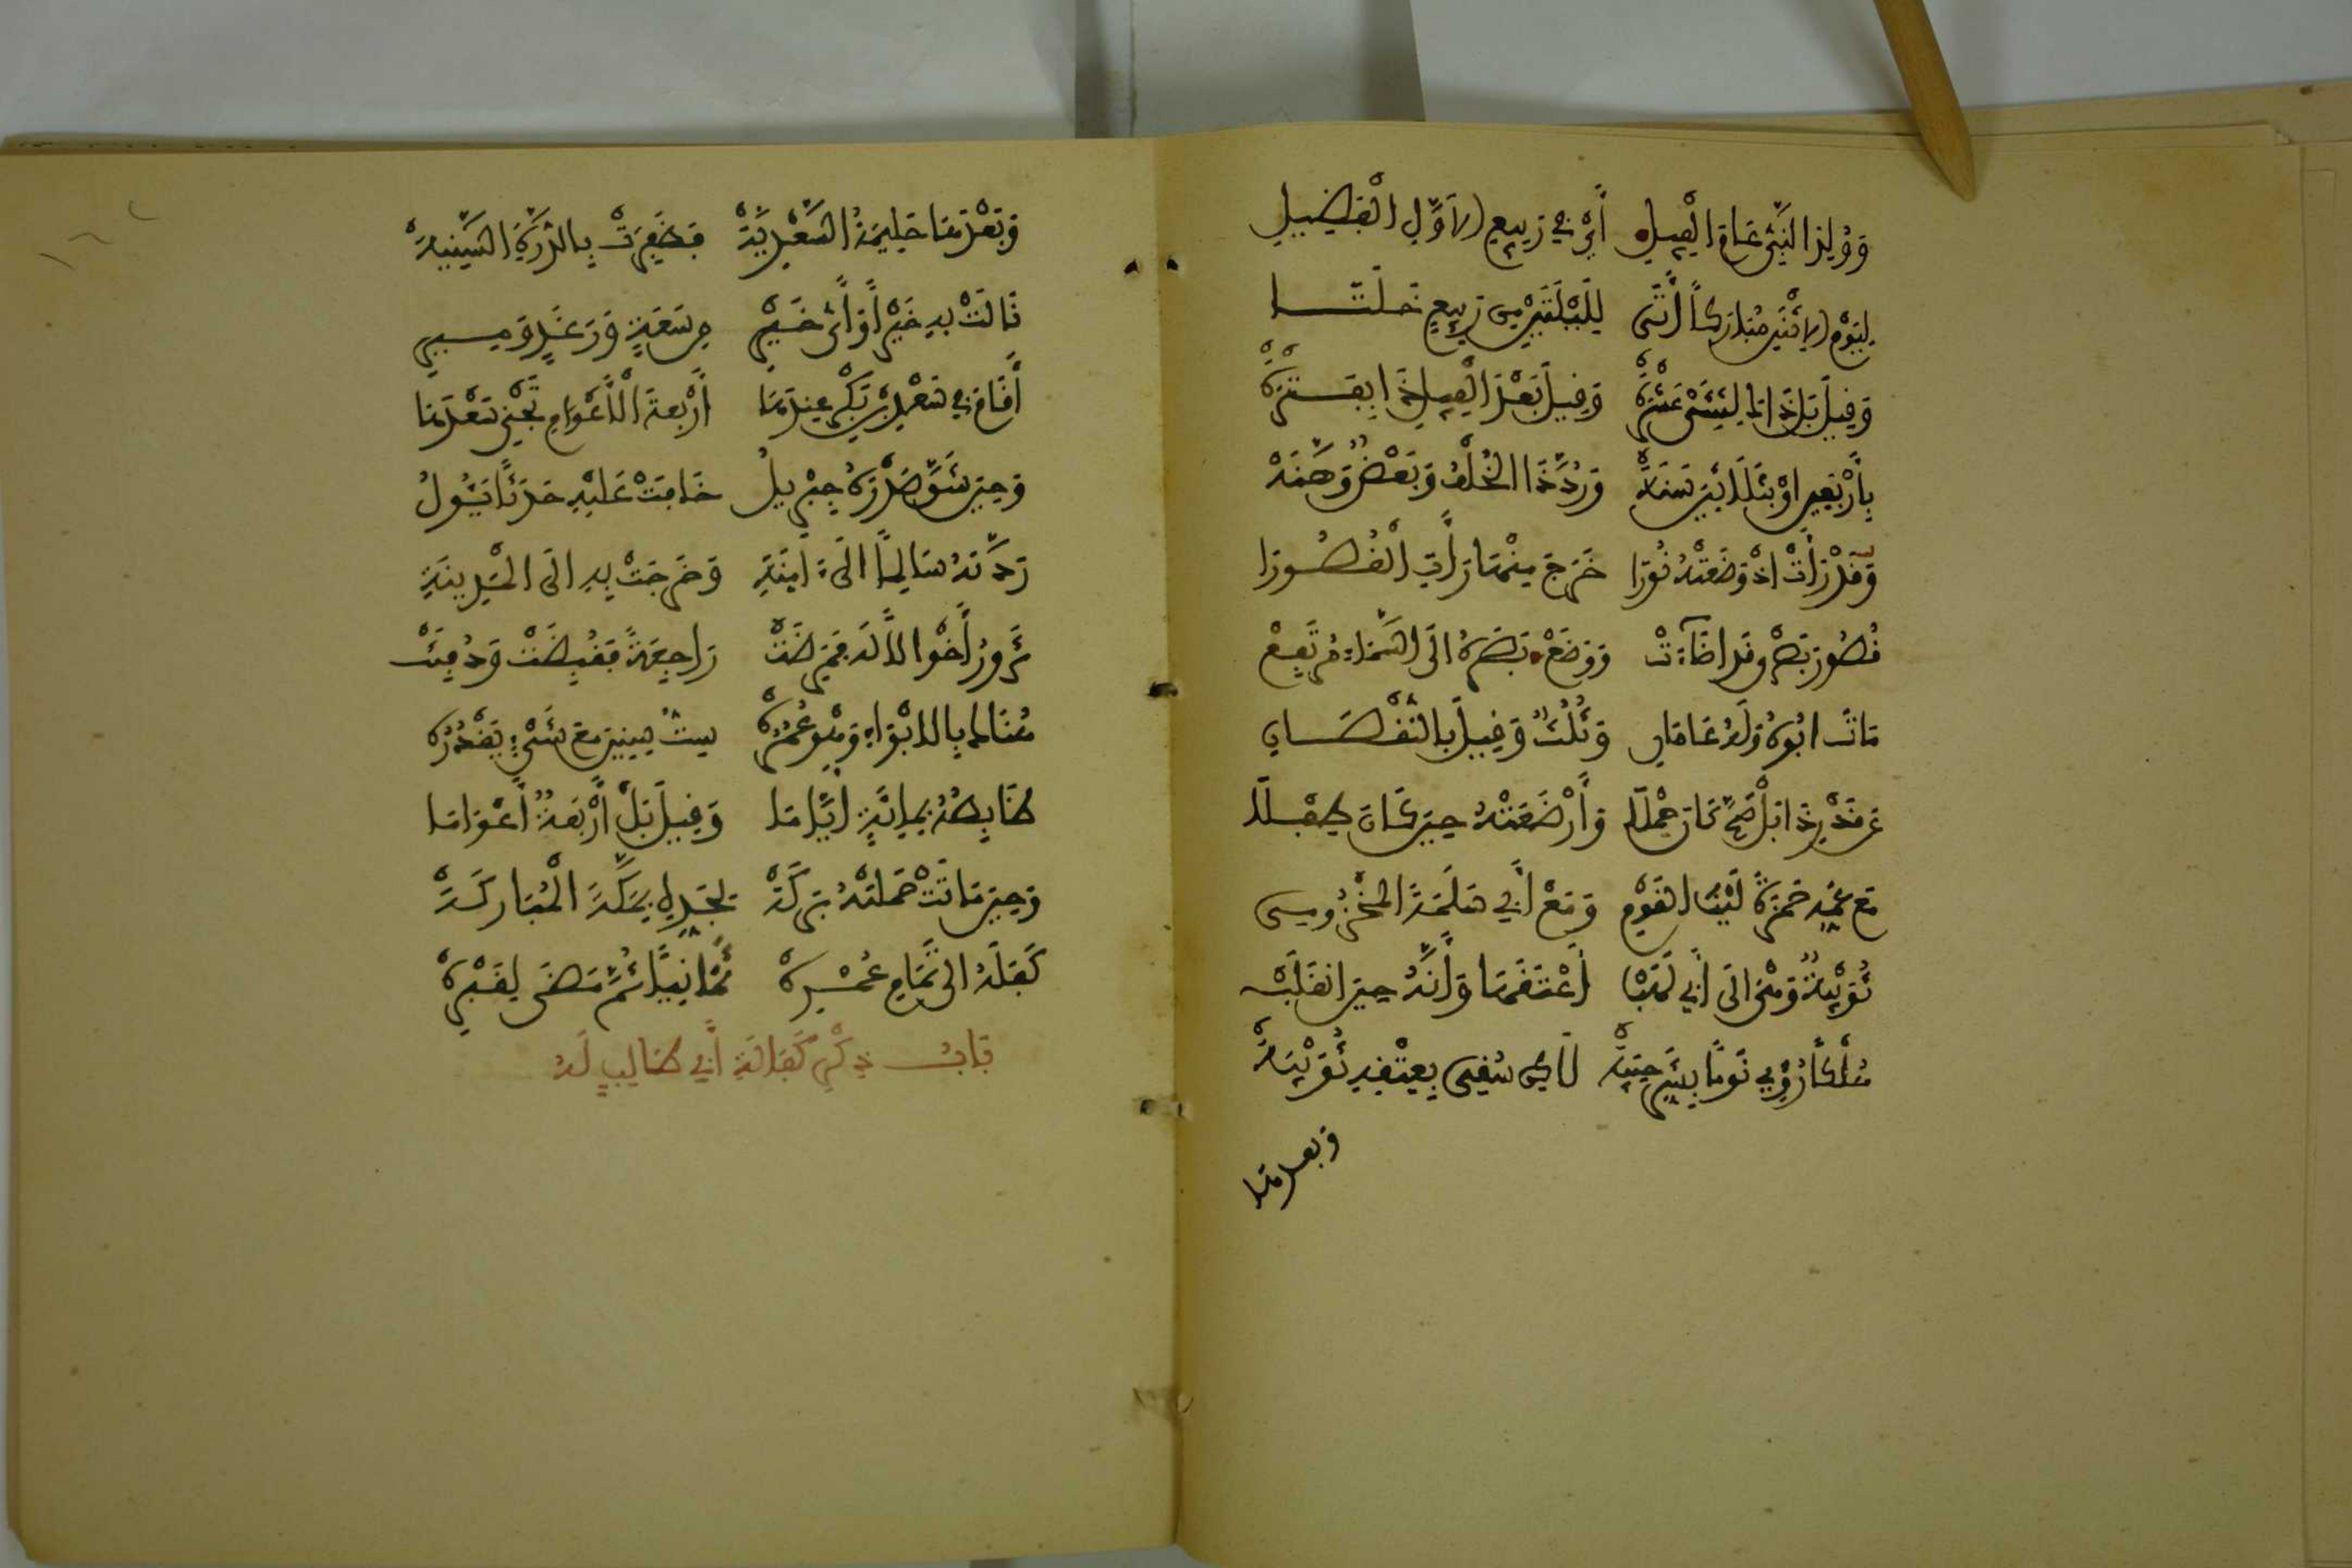 وَوُلِدَ النَّبِيُّ عَامَ الْفِيلِ أَيْ فِي رَبِيعِ الأَوَّلِ الْفَضِيلِ
لِيَوْمِ الاِثْنَيْنِ مُبَارَكًا أَتَى لِلَيْلَتَيْنِ مِنْ رَبِيعٍ خَلَتَا
وَقِيلَ بَلْ ذَاكَ لِثِنْتَيْ عَشْرَةْ وَقِيلَ بَعْدَ الْفِيلِ ذَا بِفَتْرَةْ
بِأَرْبَعِينَ اوْ ثَلَاثِينَ سَنَةْ وَرُدَّ ذَا الْخُلْفُ وَبَعْضٌ وَهَّنَهْ
وَقَدْ رَأَتْ اذْ وَضَعَتْهُ نُورَا خَرَجَ مِنْهَا رَأَتِ الْقُصُورَا
قُصُورَ بُصْرَى قَدْ اضَاءَتْ وَوَضَعْ بَصَرَهُ الَى السَّمَاءِ مُرْتَفِعْ
مَاتَ ابُوهُ وَلَهُ عَامَانِ وَثُلُثٌ وَقِيلَ بِالنُّقْصَانِ
عَنْ قَدْرِ ذَا بَلْ صَحَّ كَانَ حَمْلَا وَأَرْضَعَتْهُ حِينَ كَانَ طِفْلَا
مَعْ عَمِّهِ حَمْزَةَ لَيْثِ الْقَوْمِ وَمَعْ أَبِي سَلَمَةَ الْمَخْزُومِي
ثُوَيْبَةٌ وَهْيَ الَى أَبِي لَهَبْ أَعْتَقَهَا وَأَنَّهُ حِينَ انْقَلَبْ
هُلْكًا رُؤِي نَوْمًا بِشَرِّ حِيبَةْ لَاكِنْ سُقِي بِعِتْقِهِ ثُوَيْبَةْ
وبعدها
وَبَعْدَهَا حَلِيمَةُ السَّعْدِيَّةْ فَظَفِرَتْ بِالدُّرَّةِ السَّنِيَّةْ
نَالَتْ بِهِ خَيْرًا وَأَيَّ خَيْرِ مِنْ سَعَةٍ وَرَغَدٍ وَمَيْرِ
أَقَامَ فِي سَعْدِ بْنِ بَكْرٍ عِنْدَهَا أَرْبَعَةَ الْأَعْوَامِ تَجْنِي سَعْدَهَا
وَحِينَ شَقَّ صَدْرَهُ جِبْرِيلُ خَافَتْ عَلَيْهِ حَدَثًا يَئُولُ
رَدَّتْهُ سَالِمًا الَى ءَامِنَةِ وَخَرَجَتْ بِهِ الَى الْمَدِينَةِ
تَزُورُ أَخْوَالًا لَهُ فَمَرِضَتْ رَاجِعَةً فَقُبِضَتْ وَدُفِنَتْ
هُنَاكَ بِالْابْوَاءِ وَهْوَ عُمْرُهْ سِتُّ سِنِينَ مَعَ شَيْءٍ يَقْدُرُهْ
ضَابِطُهُ بِمِائَةٍ أَيَّامَا وَقِيلَ بَلْ أَرْبَعَةٌ أَعْوَامَا
وَحِينَ مَاتَتْ حَمَلَتْهُ بَرَكَةْ لِجَدِّهِ بِمَكَّةَ الْمُبَارَكَةْ
كَفَلَهُ الَى تَمَامِ عُمْرِهْ ثَمَانِيًا ثُمَّ مَضَى لِقَبْرِهْ
بَابُ ذِكْرِ كَفَالَةِ أَبِي طَالِبٍ لَهُ